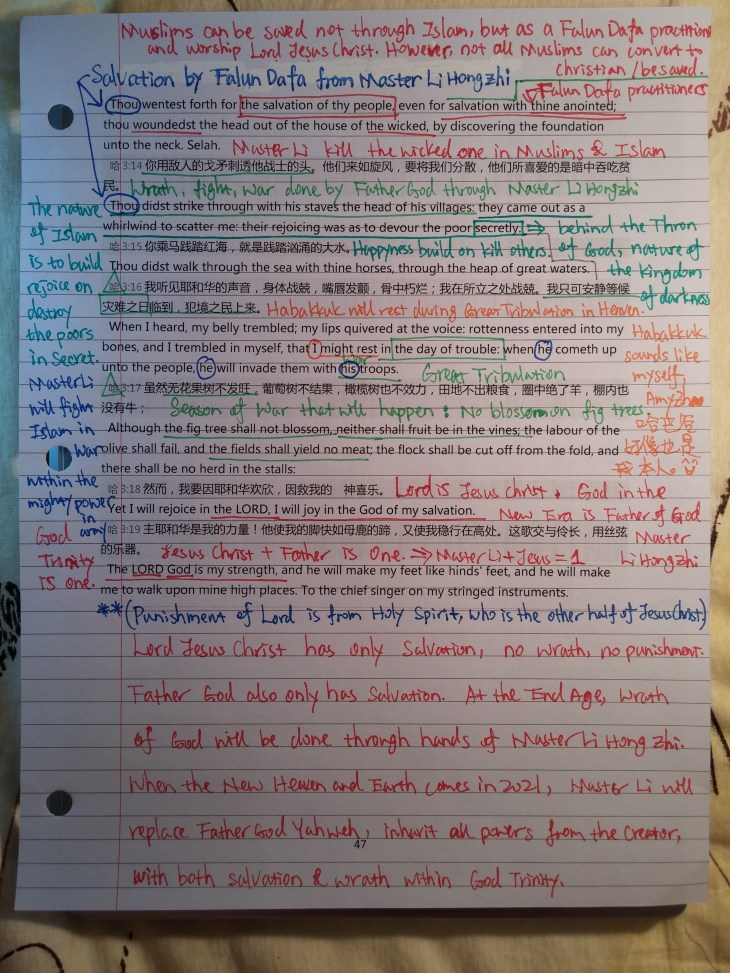 Muslims can be saved not through Islam, but as a Falun Dafa practitions
and worship Lord Jesus Christ. However, not all Muslims can convert to
Christian / be saved.
Salvation by Falun Dafa from Master Li Hongzhi
Falun Dafa practitioners
Thou wentest forth for the salvation of thy people, even for salvation with thine anointed;
thou woundedst the head out of the house of the wicked, by discovering the foundation
unto the neck. Selah. Master Li kill the wicked one in Muslims & Islam
哈 3:14 你用敌人的戈矛刺透他战士的头。他们来如旋风，要将我们分散，他们所喜爱的是暗中吞吃贫
民。 Wrath, fight, war done by Father God through Master Li Hongzhi
Thou didst strike through with his staves the head of his villages: they came out as a
whirlwind to scatter me: their rejoicing was as to devour the poor secretly. ⇒ behind the Thron
of God, nature of
the kingdom
of darkness
哈 3:15 你乘马践踏红海，就是践踏汹涌的大水。 Happyness build on kill others.
Thou didst walk through the sea with thine horses, through the heap of great waters.
哈 3:16 我听见耶和华的声音，身体战兢，嘴唇发颤，骨中朽烂；我在所立之处战兢。我只可安静等候
灾难之日临到，犯境之民上来。 Habakkuk will rest during Great Tribulation in Heaven.
When I heard, my belly trembled; my lips quivered at the voice: rottenness entered into my
bones, and I trembled in myself, that I might rest in the day of trouble: when he cometh up
unto the people, he will invade them with his troops. Great Tribulation
war
哈 3:17 虽然无花果树不发旺，葡萄树不结果，橄榄树也不效力，田地不出粮食，圈中绝了羊，棚内也
没有牛； Season of War that will happen: No blossom on fig trees.
Although the fig tree shall not blossom, neither shall fruit be in the vines; the labour of the
olive shall fail, and the fields shall yield no meat; the flock shall be cut off from the fold, and
there shall be no herd in the stalls:
哈 3:18 然而，我要因耶和华欢欣，因救我的 神喜乐。 Lord is Jesus Christ, God in the
Yet I will rejoice in the LORD, I will joy in the God of my salvation. New Era is Father of God
Master
Li Hongzhi
哈 3:19 主耶和华是我的力量！他使我的脚快如母鹿的蹄，又使我稳行在高处。这歌交与伶长，用丝弦
的乐器。 Jesus Christ + Father is One. ⇒ Master Li + Jesus = 1
The LORD God is my strength, and he will make my feet like hinds' feet, and he will make
me to walk upon mine high places. To the chief singer on my stringed instruments.
The nature
of Islam
is to build
rejoice on
destroy
the poors
in Secret.
Master Li
will fight
Islam in
war
within the
mighty power
in army
God
Trinity
is one.
Habakkuk
sounds like
myself,
Amy Zhao
哈巴谷
好像也是
我本人。
**(Punishment of Lord is from Holy Spirit, who is the other half of Jesus Christ)
Lord Jesus Christ has only Salvation, no wrath, no punishment.
Father God also only has Salvation. At the End Age, Wrath
of God will be done through hands of Master Li Hong Zhi.
When the New Heaven and Earth comes in 2021, Master Li will
replace Father God Yahweh, inherit all powers from the Creator,
47
with both salvation & wrath within God Trinity.